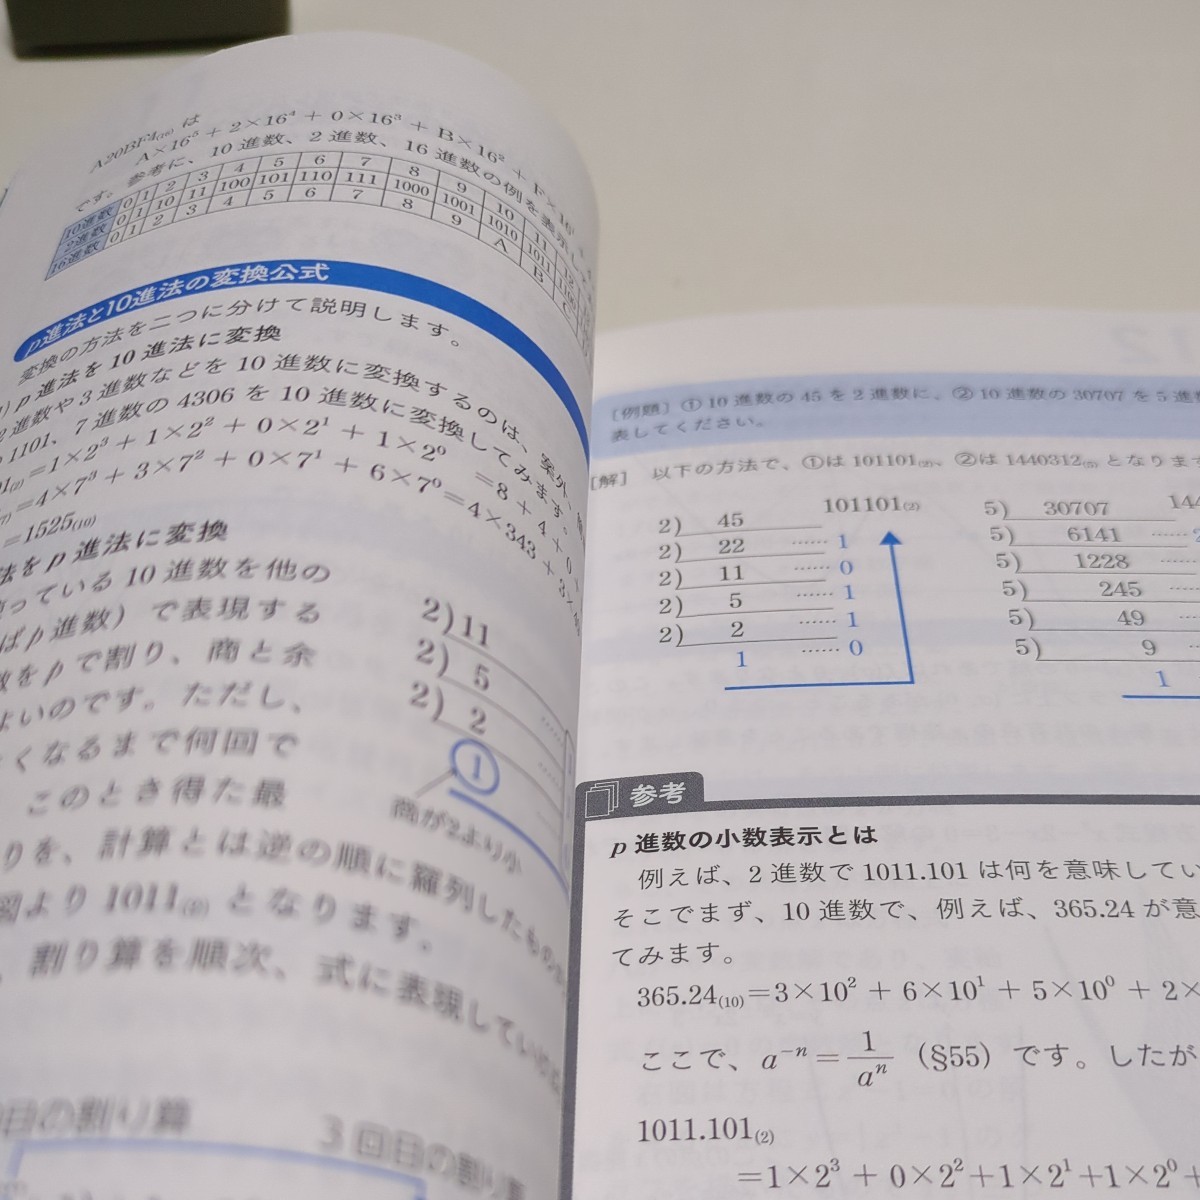 A20BF4(16) は
A×16⁵ + 2×16⁴ + 0×16³ + B×16² + F×16¹
です。参考に、10 進数、2 進数、16 進数の例を表示
10進数 0 1 2 3 4 5 6 7 8 9 10 11 12
2進数 0 1 10 11 100 101 110 111 1000 1001 1010 1011 1100
16進数 0 1 2 3 4 5 6 7 8 9 A B C
p進法と10進法の変換公式
変換の方法を二つに分けて説明します。
p 進法を 10 進法に変換
2進数や 3 進数などを 10 進数に変換するのは、案外、
1101、7 進数の 4306 を 10 進数に変換してみます。
01(2)=1×2³ + 1×2² + 0×2¹ + 1×2⁰ =8 + 4 + 0
(7)=4×7³ + 3×7² + 0×7¹ + 6×7⁰=4×343 + 3×
=1525(10)
法を p 進法に変換
っている 10 進数を他の
ばp進数) で表現する
数をpで割り、商と余
よいのです。ただし、
くなるまで何回で
このとき得た最
りを、計算とは逆の順に羅列したもの
図より 1011(2) となります。
、割り算を順次、式に表現してい
2) 11
2) 5
2) 2
1
商が2より小
回目の割り算
3 回目の割り算
12
[例題] ① 10 進数の 45 を 2 進数に、② 10 進数の 30707 を 5 進数
表してください。
[解] 以下の方法で、①は 101101(2)、②は 1440312(5) となります
101101(2)
2) 45
2) 22 …… 1
2) 11 …… 0
2) 5 …… 1
2) 2 …… 1
1 …… 0
144
5) 30707
5) 6141 …… 2
5) 1228 ……
5) 245 ……
5) 49 ……
5) 9 ……
1
参考
p 進数の小数表示とは
例えば、2 進数で 1011.101 は何を意味してい
そこでまず、10 進数で、例えば、365.24 が意
てみます。
365.24(10)=3×10² + 6×10¹ + 5×10⁰ + 2×
ここで、a⁻ⁿ = 1/aⁿ (§55) です。したが
1011.101(2)
=1×2³ + 0×2²+1×2¹+1×2⁰+